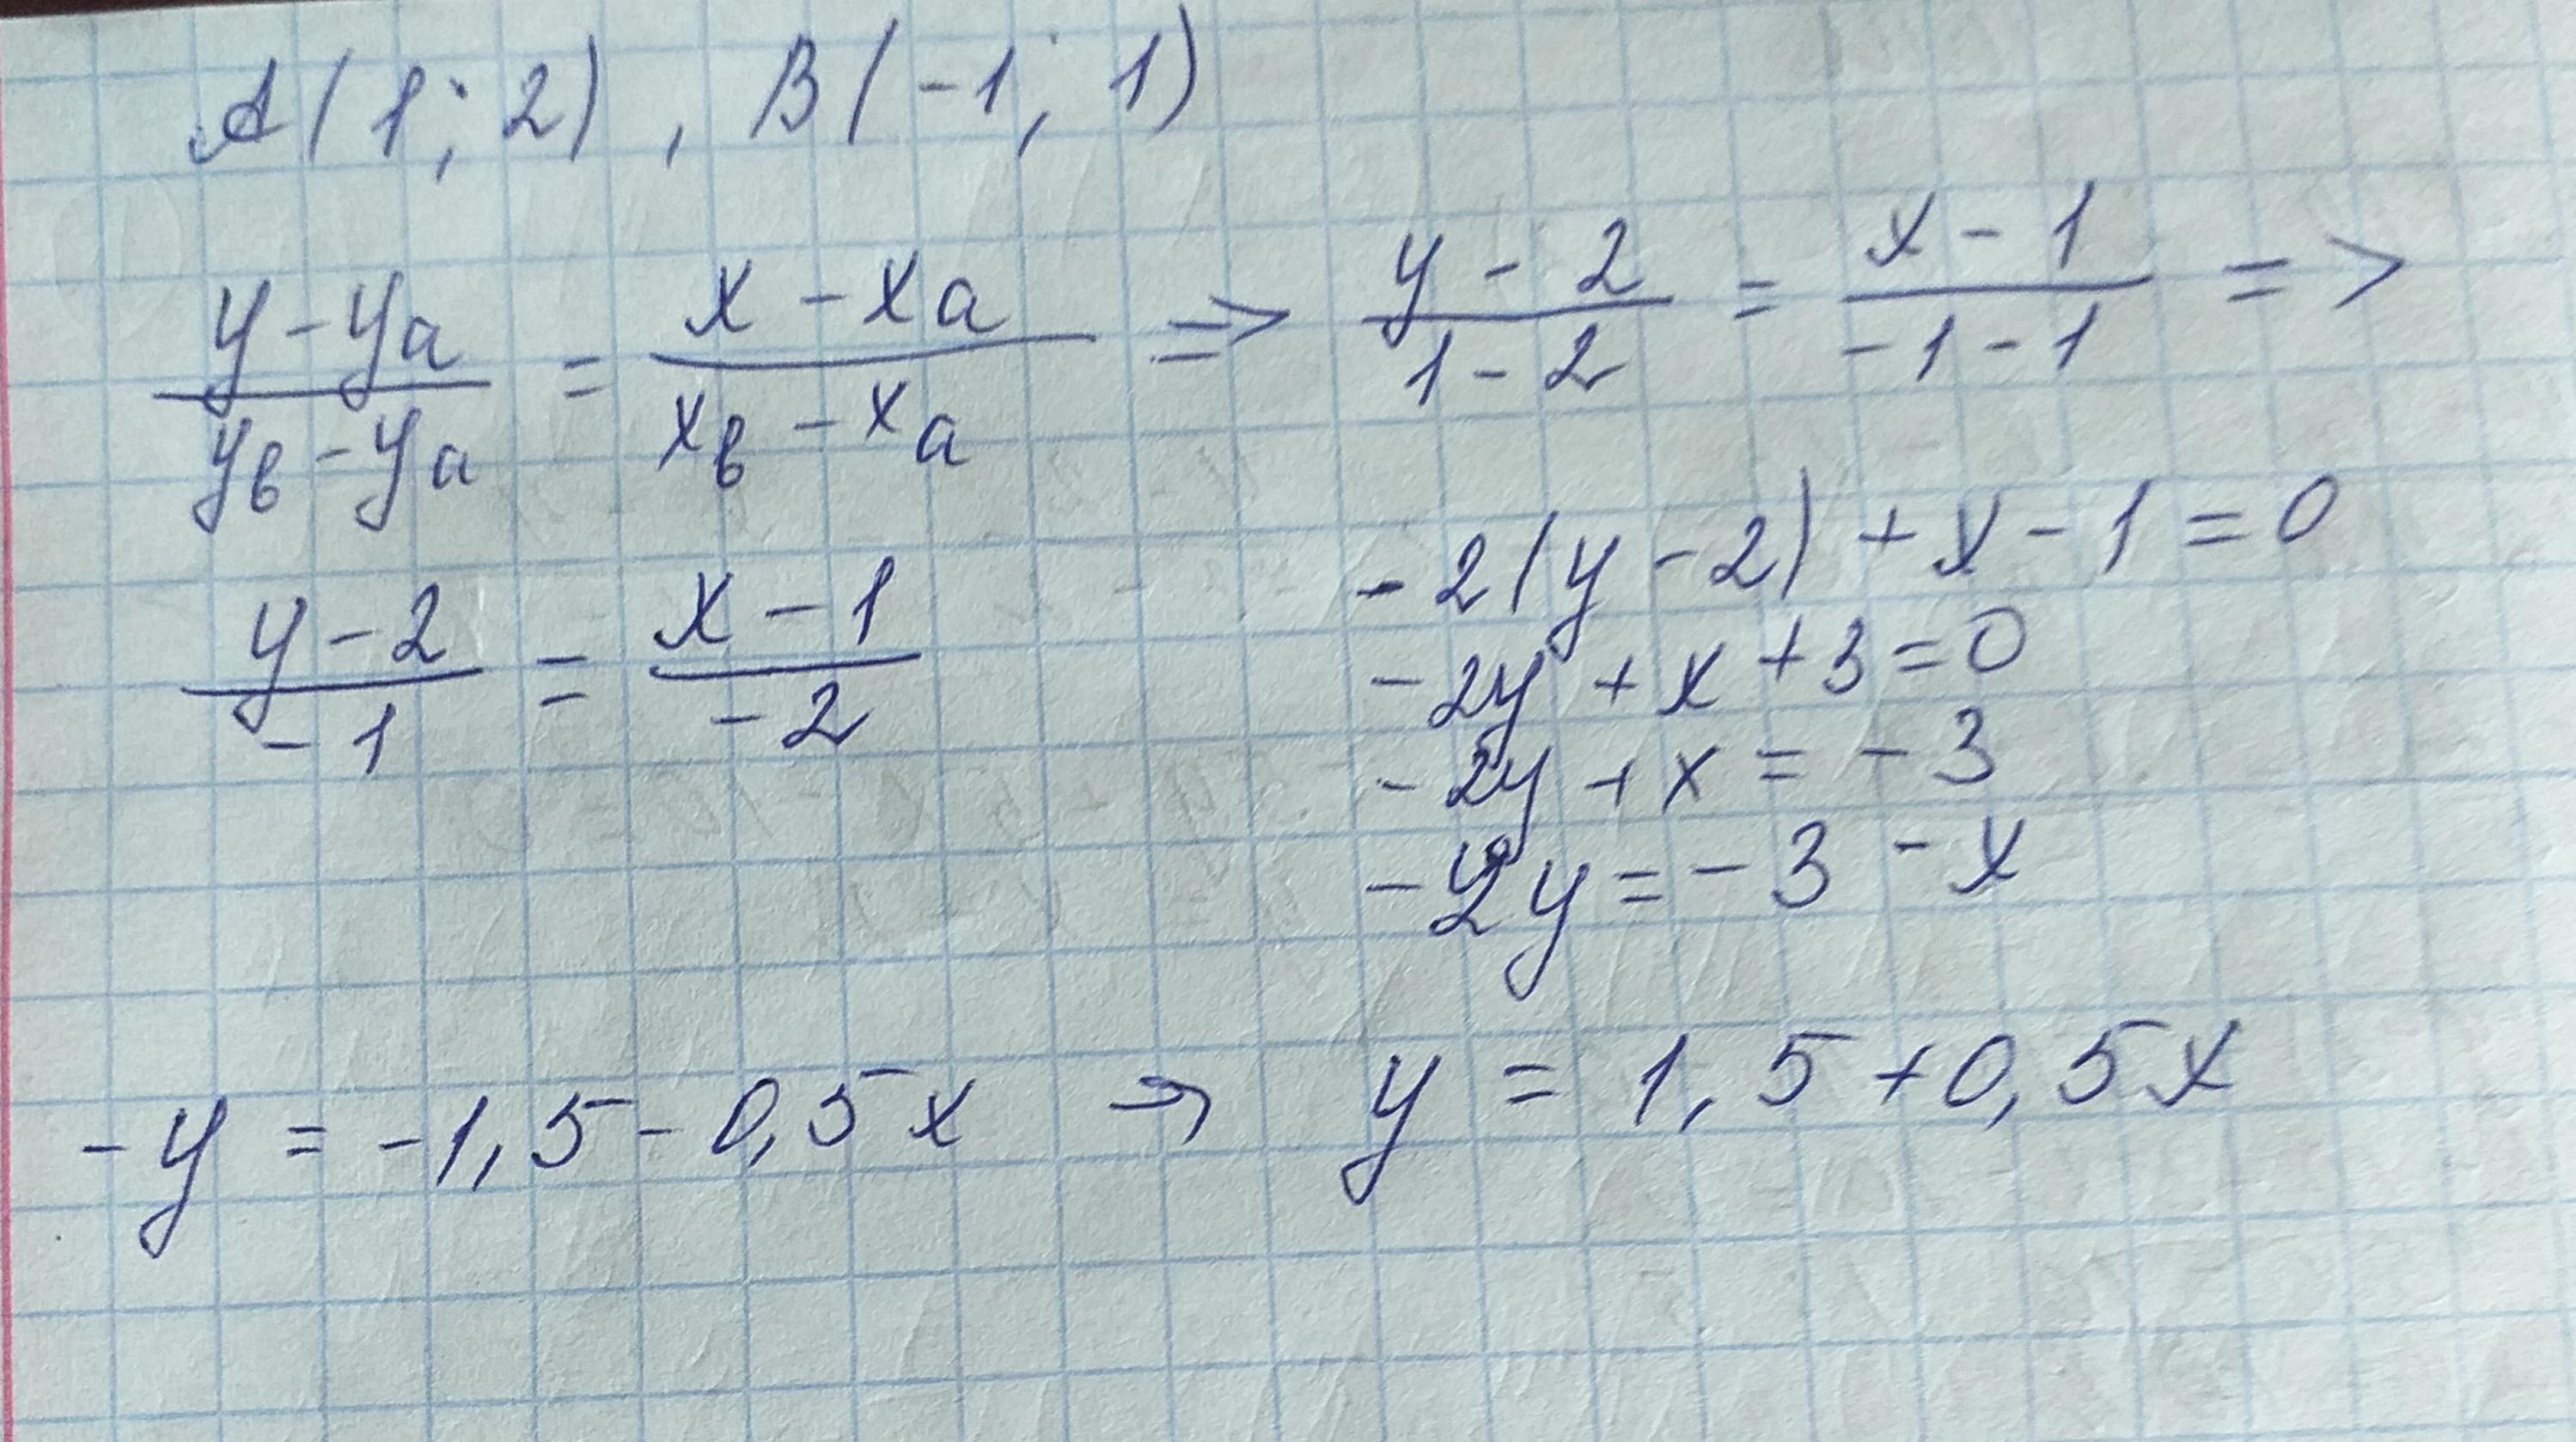 A(1; 2), B(-1; 1)
(y - yₐ)/(yв - yₐ) = (x - xₐ)/(xв - xₐ) => (y - 2)/(1 - 2) = (x - 1)/(-1 - 1) =>
(y - 2)/(-1) = (x - 1)/(-2)
-2(y - 2) + x - 1 = 0
-2y + x + 3 = 0
-2y + x = -3
-2y = -3 - x
-y = -1,5 - 0,5x → y = 1,5 + 0,5x